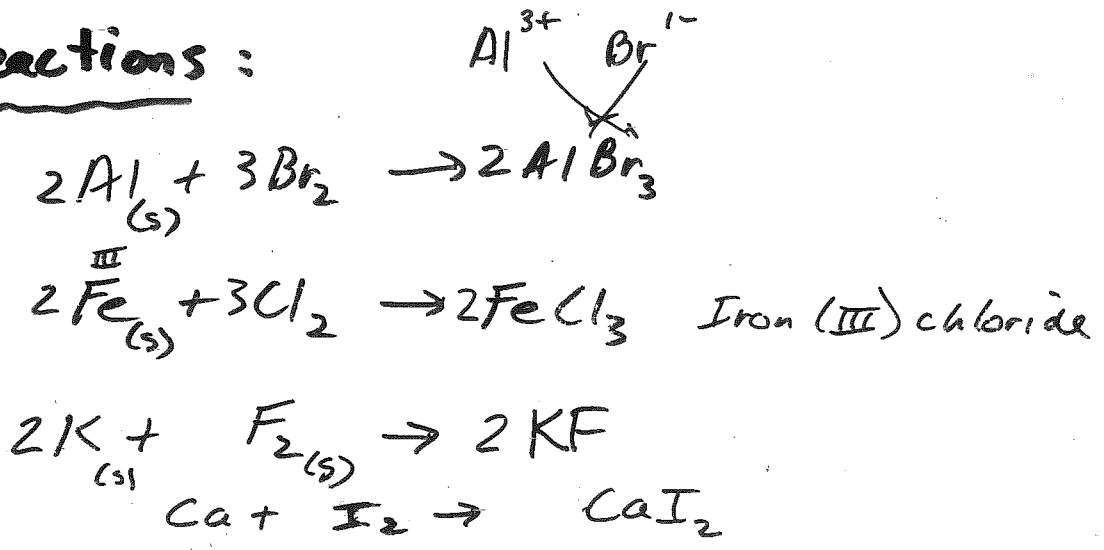 eactions :
Al³⁺ Br¹⁻
2Al(s) + 3Br₂ → 2AlBr₃
III
2Fe(s) + 3Cl₂ → 2FeCl₃ Iron (III) chloride
2K(s) + F₂(s) → 2KF
Ca + I₂ → CaI₂